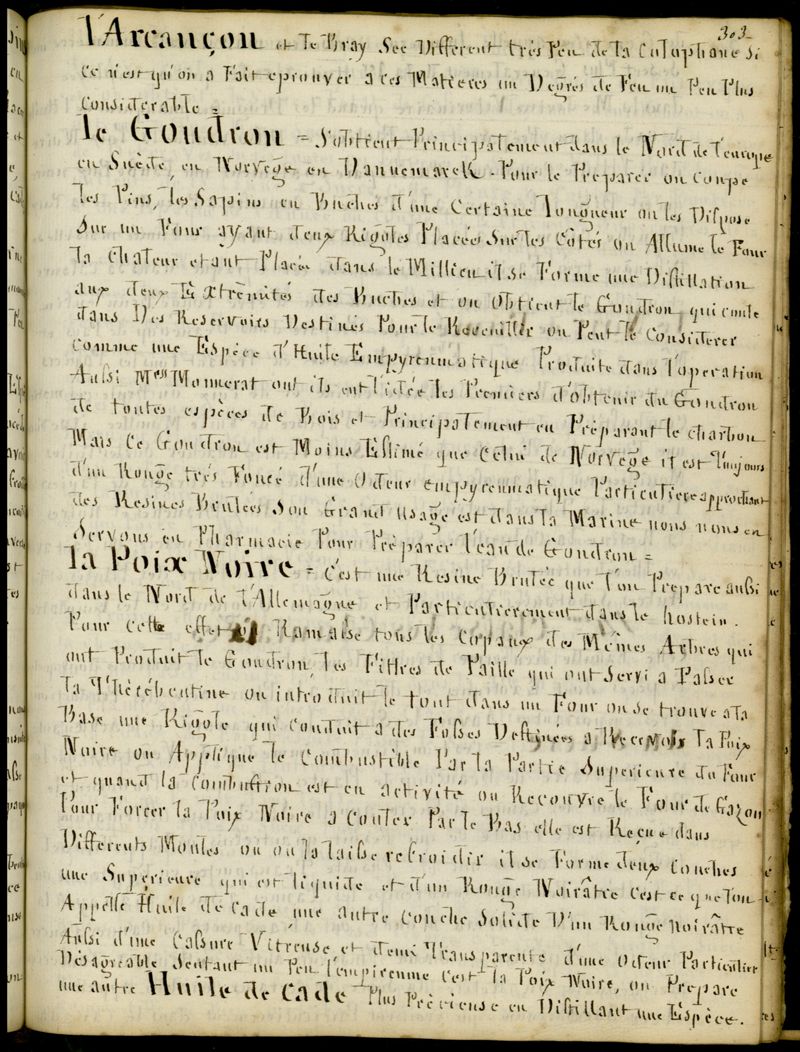 303
l'Arcançon et le Bray Sec Different très Peu de la Colophane Si
Ce n'est qu'on a Fait eprouver a ces Matieres un Degrés de Feu un Peu Plus
Considerable =
le Goudron = S'obtient Principalement dans le Nord de l'europe
en Suède, en Norvege en Dannemarck. Pour le Preparer on Coupe
les Pins, les Sapins en Buches d'une Certaine longueur on les Dispose
Sur un Four ayant deux Rigoles Placées Sur les Côtés on Allume le Four
la Chaleur etant Placée dans le Millieu il se Forme une Distillation
aux deux Extrêmités des Buches et on Obtient le Goudron qui coule
dans Des Reservoirs Destinés Pour le Receuillir on Peut le Considerer
comme une Espèce d'Huile Empyreumatique Produite dans l'operation
Aussi Mrs Monnerat ont ils eut l'idée les Premiers d'obtenir du Goudron
de toutes espèces de Bois et Principalement en Préparant le charbon
Mais Ce Goudron est Moins Estimé que Celui de Norvege il est Toujours
d'un Rouge très Foncé d'une Odeur empyreumatique Particuliere approchant
des Resines Brulées Son Grand usage est dans la Marine nous nous en
Servons en Pharmacie Pour Préparer l'eau de Goudron =
la Poix Noire = C'est une Resine Brulée que l'on Prepare aussi
dans le Nord de l'Allemagne et Particulierement dans le hostein.
Pour Cett effet Ramasse tous les Copaux des Mêmes Arbres qui
ont Produit le Goudron, les Filtres de Paille qui ont Servi a Passer
la Thérébentine on introduit le tout dans un Four on se trouve a la
Base une Rigole qui conduit a des Fosses Destinées a Recevoir la Poix
Noire on Applique le Combustible Par la Partie Superieure du Four
et quand la Combustion est en activité on Recouvre le Four de Gazon
Pour Forcer la Poix Noire a Couler Par le Bas elle est Reçue dans
Differents Moules on on la laisse refroidir il se Forme deux Couches
une Superieure qui est liquide et d'un Rouge Noirâtre C'est ce que l'on
Appelle Huile de Cade une autre Couche Solide D'un Rouge Noirâtre
Aussi d'une Cassure Vitreuse et demi Transparente d'une Odeur Particuliere
Désagreable Sentant un Peu l'empireume C'est la Poix Noire, on Prepare
une autre Huile de Cade Plus Precieuse en Distillant une Espèce.